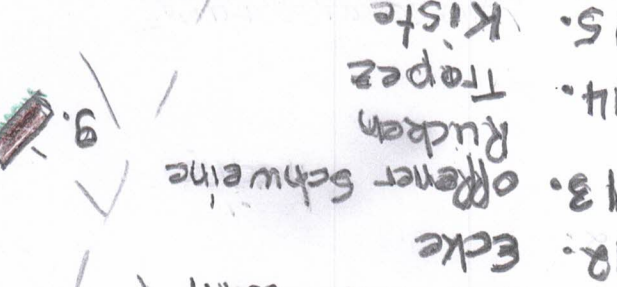 2. Ecke
13. offener Schweine
Rücken
14. Trapez
5. Kiste
6.